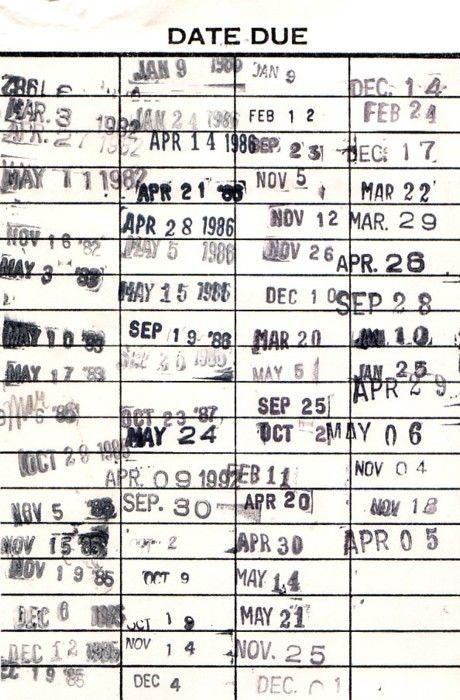 DATE DUE
MAR. 3 1982
APR. 27 1982
MAY 11 1982
NOV 16 '82
MAY 3 '83
MAY 10 '83
MAY 17 '83
OCT 28 1985
NOV 5 '85
NOV 15 '85
NOV 19 '85
DEC 6 1985
DEC 12 1985
DEC 19 '85
JAN 9 1986
JAN 24 1986
APR 14 1986
APR 21 '86
APR 28 1986
MAY 5 1986
MAY 15 1986
SEP 19 '86
SEP 26 1986
OCT 23 '87
MAY 24
APR. 09 1992
SEP. 30
2
OCT 9
OCT 19
NOV 14
DEC 4
JAN 9
FEB 12
SEP 23
NOV 5
NOV 12
NOV 26
DEC 10
MAR 20
MAY 5
SEP 25
OCT 2
FEB 11
APR 20
APR 30
MAY 14
MAY 21
NOV. 25
DEC. 01
DEC. 14
FEB 24
DEC. 17
MAR 22
MAR. 29
APR. 26
SEP 28
JAN 10
JAN 25
APR 29
MAY 06
NOV 04
NOV 18
APR 05